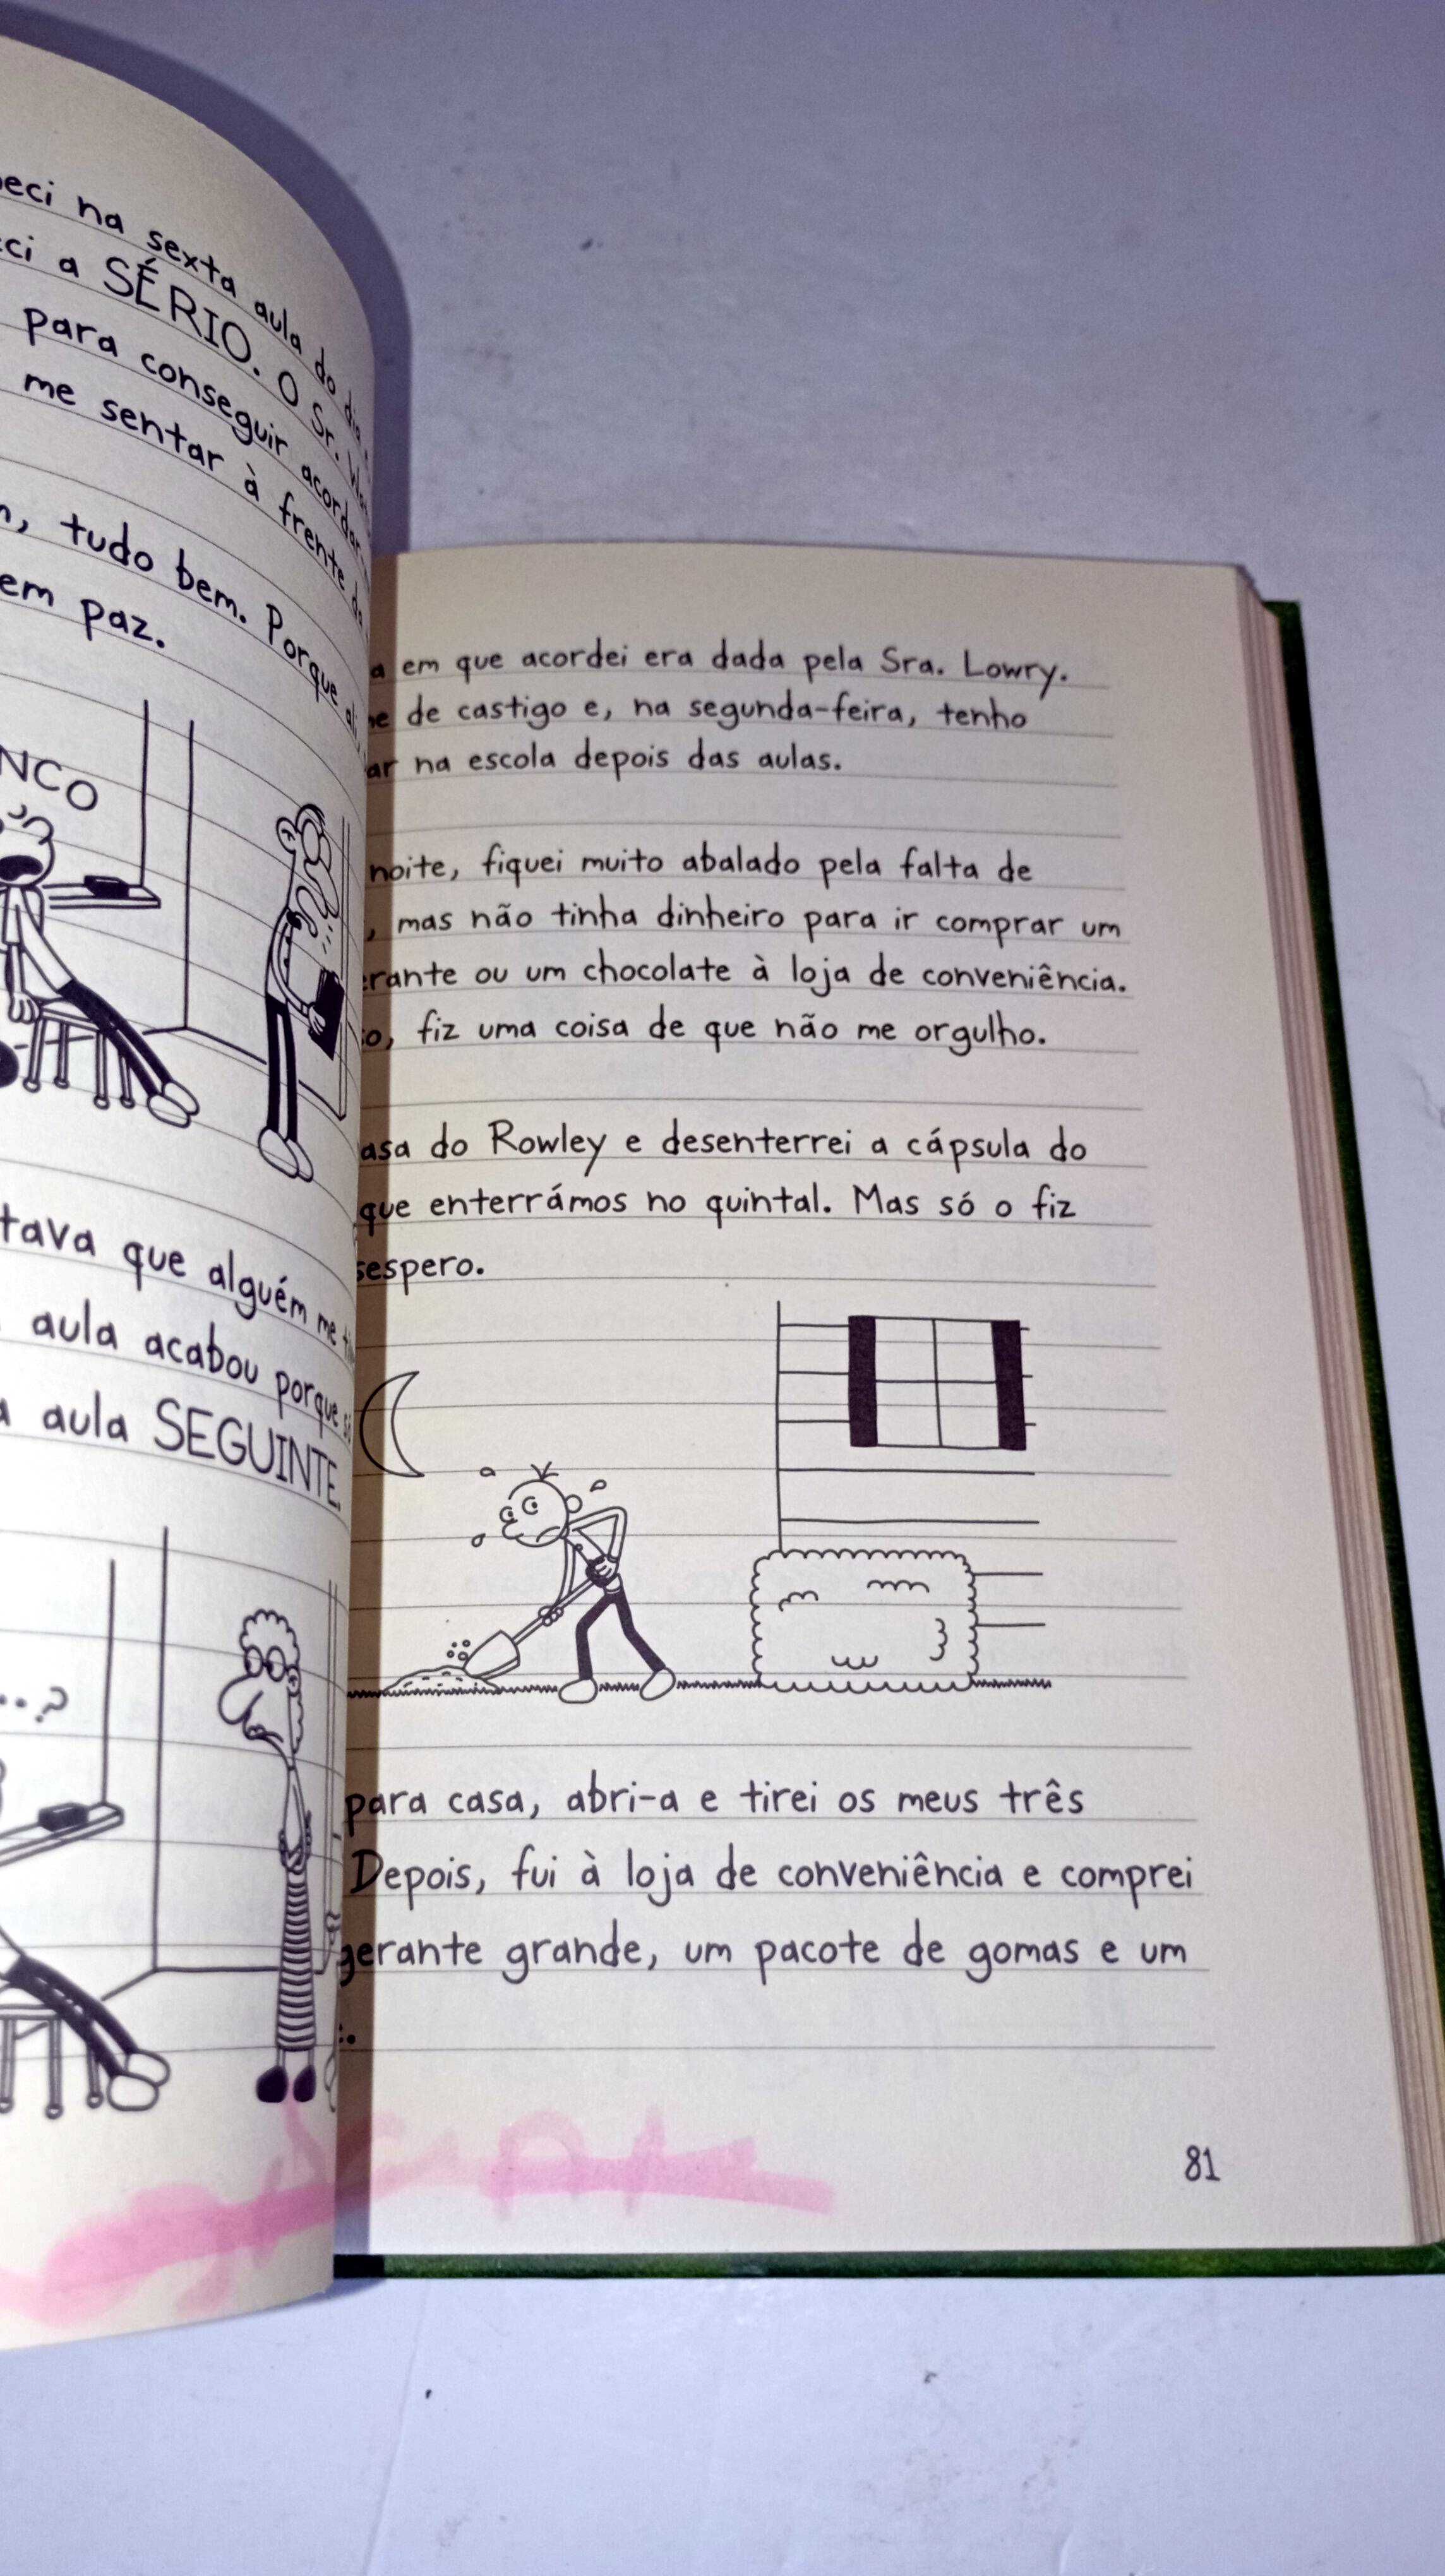 na sexta aula do
a SÉRIO. O Sr.
para conseguir acordar
me sentar à frente
tudo bem. Porque
em paz.
tava que alguém me
aula acabou porque
aula SEGUINTE.
...?
a em que acordei era dada pela Sra. Lowry.
de castigo e, na segunda-feira, tenho
ar na escola depois das aulas.
noite, fiquei muito abalado pela falta de
, mas não tinha dinheiro para ir comprar um
erante ou um chocolate à loja de conveniência.
o, fiz uma coisa de que não me orgulho.
asa do Rowley e desenterrei a cápsula do
que enterrámos no quintal. Mas só o fiz
sespero.
para casa, abri-a e tirei os meus três
Depois, fui à loja de conveniência e comprei
gerante grande, um pacote de gomas e um
81